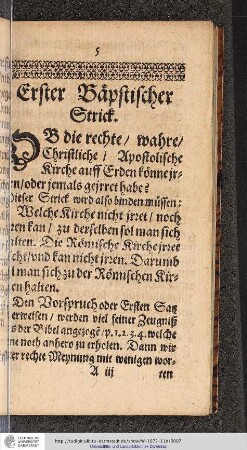 5
Erster Bäpstischer
Strick.
OB die rechte/ wahre/
Christliche/ Apostolische
Kirche auff Erden könne ir-
en/ oder jemals geirret habe?
dieser Strick wird also binden müssen:
Welche Kirche nicht irret/ noch
ren kan/ zu derselben sol man sich
alten. Die Römische Kirche irret
cht/ und kan nicht irren. Darumb
l man sich zu der Römischen Kir-
en halten.
Den Vorspruch oder Ersten Satz
erweisen/ werden viel seiner Zeugniß
s der Bibel angezogē/ p. 1. 2. 3. 4. welche
ne noth anhero zu erholen. Dann wir
er rechte Meynung mit wenigen wor-
A iij
ten